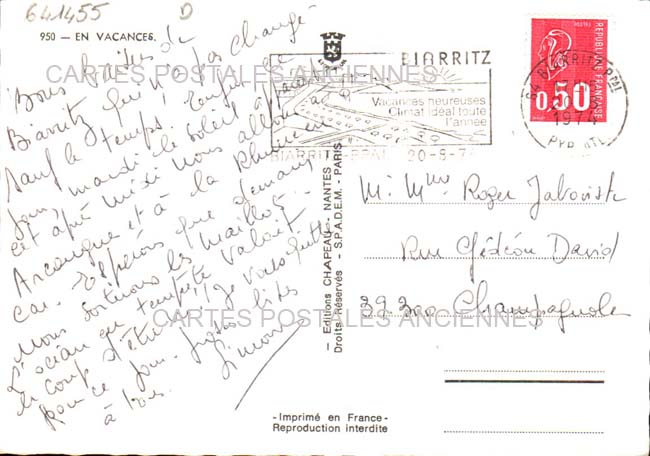 641455
D
950 — EN VACANCES.
Bons baisers de
Biarritz qui n'a pas changé
sauf le temps!
mardi le soleil
cet après midi nous allons à
Arcangues et à la Rhune en
car. Espérons que demain
nous sortirons les maillots...
L'océan en tempête valait
le coup d'être vu! Je vous quitte
pour ce jour. Grosses bises
à tous. Simone
CARTES POSTALES ANCIENNES
CARTES POSTALES ANCIENNES
- Editions CHAPEAU - NANTES
Droits Réservés - S.P.A.D.E.M. - PARIS
-Imprimé en France-
Reproduction interdite
BIARRITZ
Vacances heureuses
Climat idéal toute
l'année
BIARRITZ PPAL 20-9-7
64 BIARRITZ PPAL
PYR. ATL.
POSTES
0,50
REPUBLIQUE FRANÇAISE
M. Mme Roger
Rue Gédéon David
39300 Champagnole